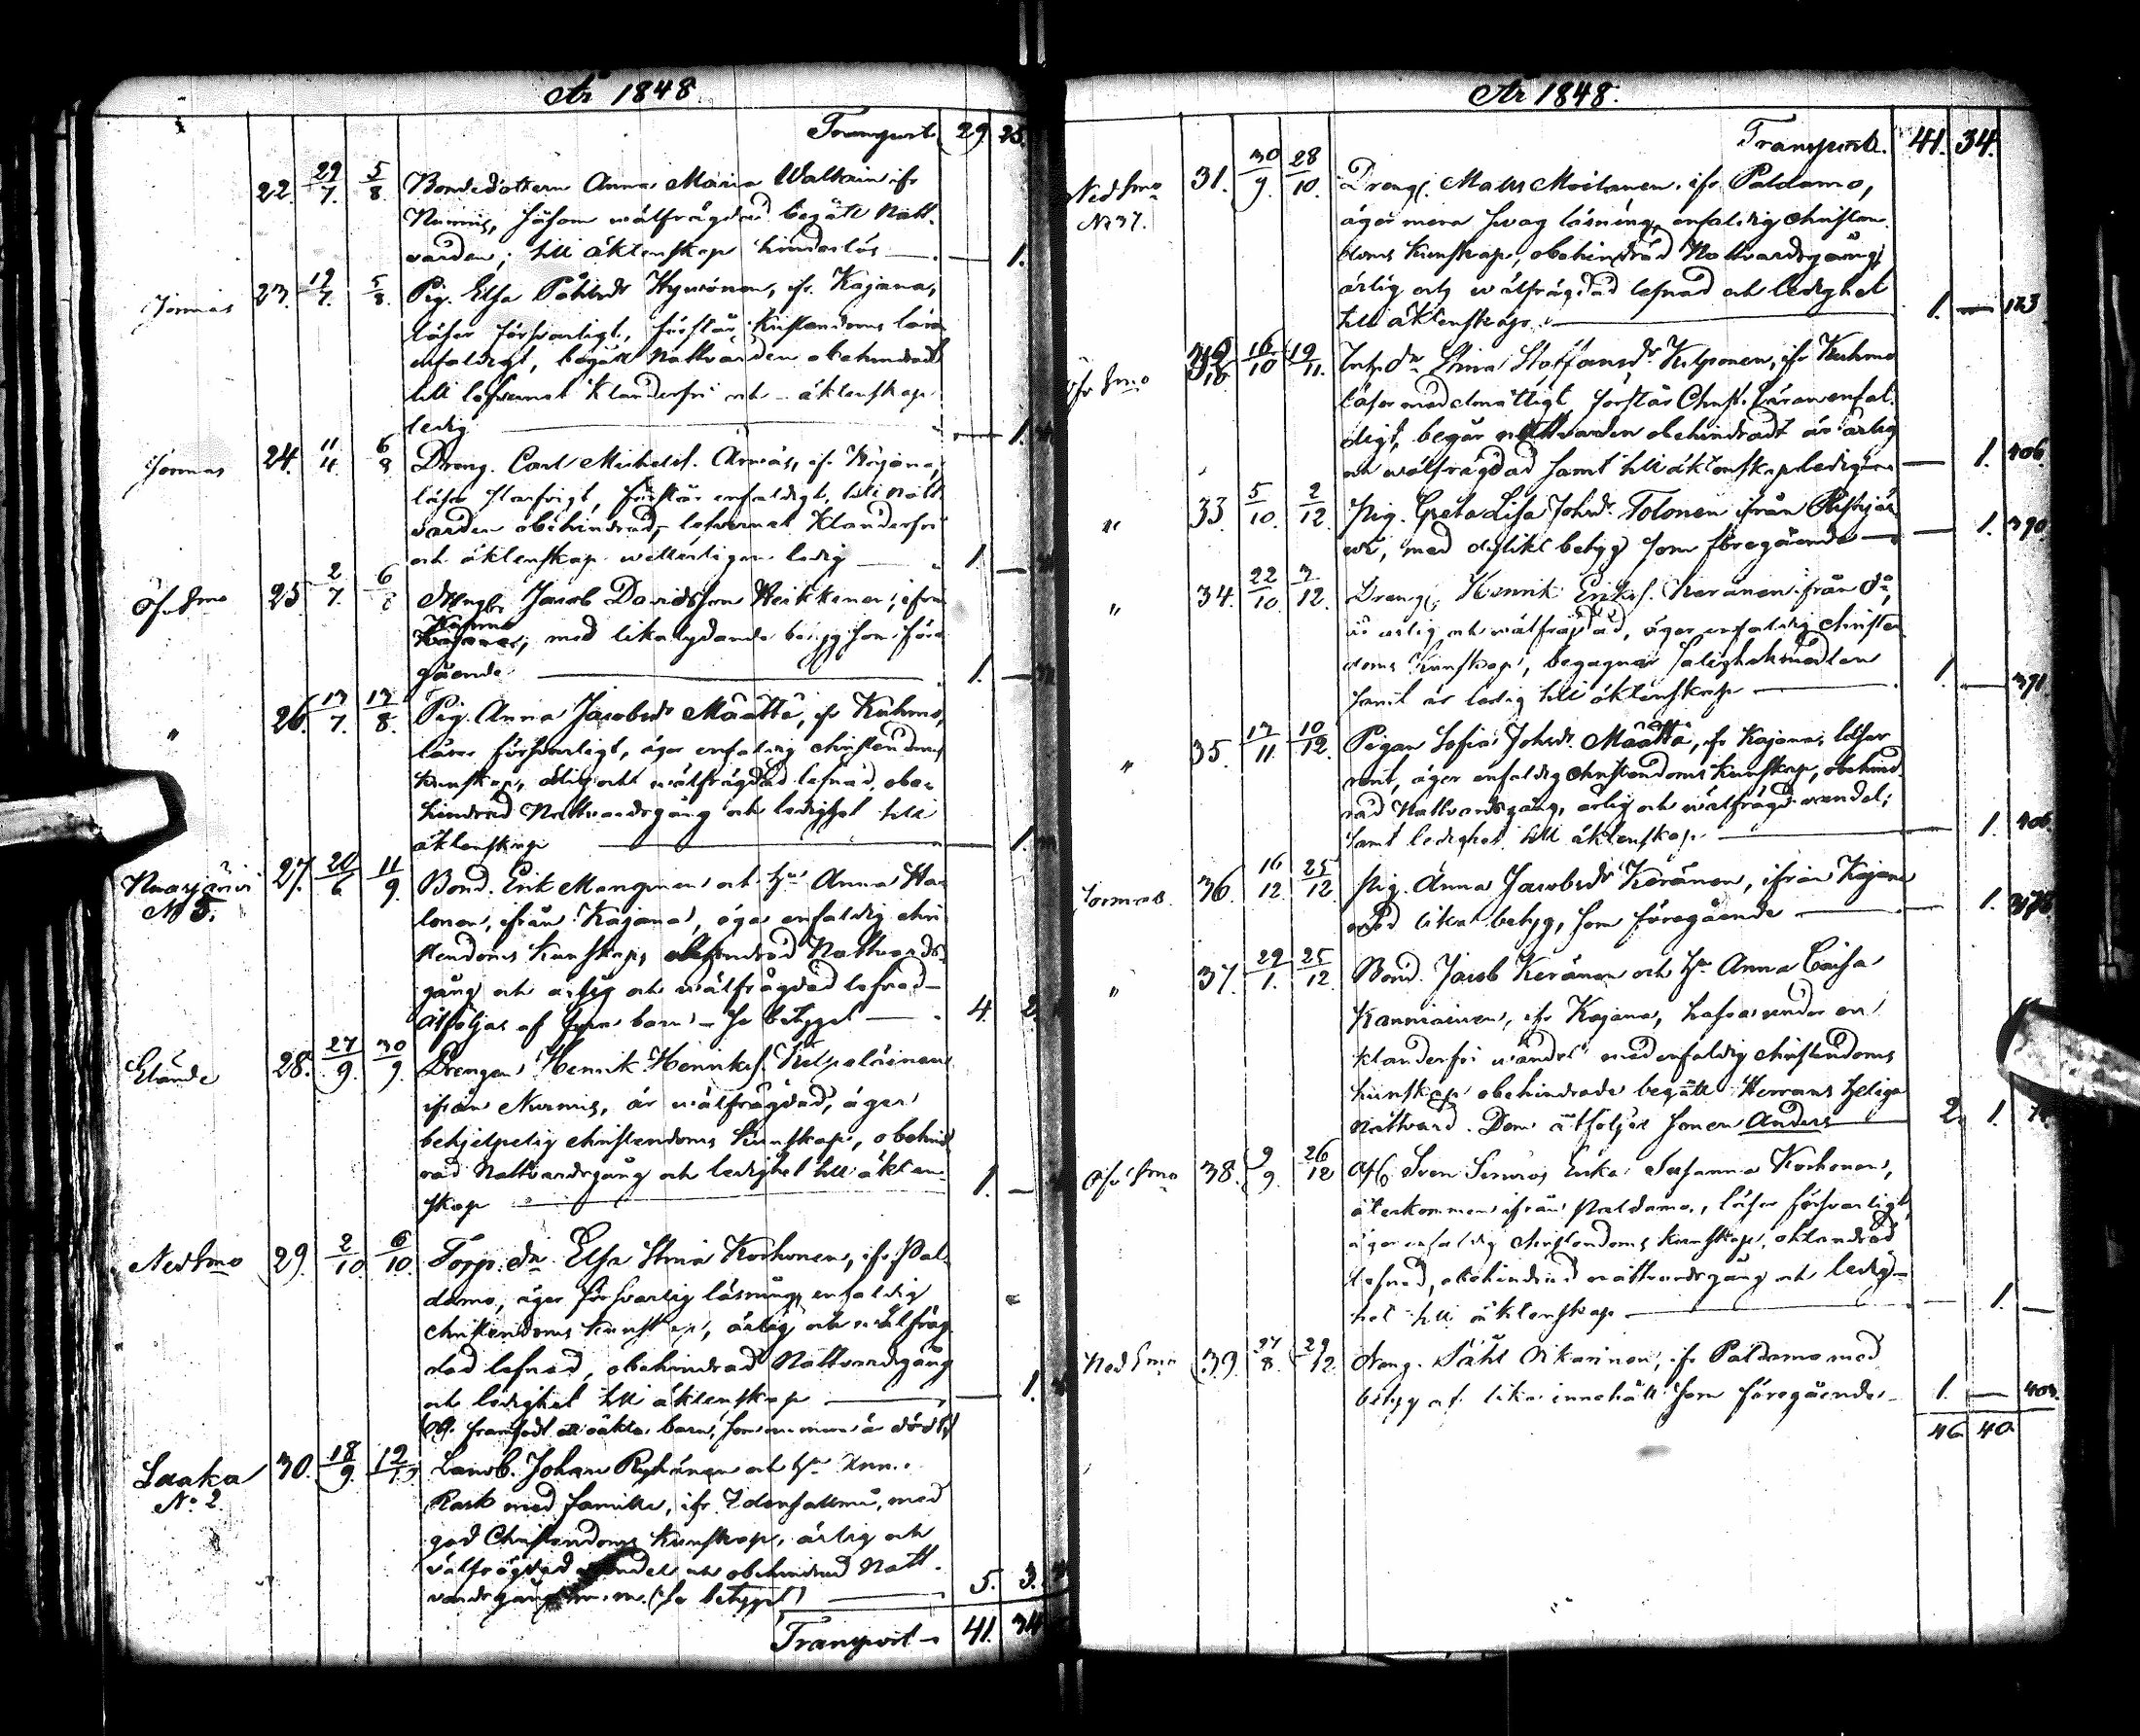 År 1848.
Transport 29. 25.
22. 29/7. 5/8. Bondedottern Anna Maria Waltain ifr
Nurmis, såsom wälfrägdad begått Natt-
varden; till äktenskap hinderlös — — 1.
Jormas 23. 19/7. 5/8. Pig. Elsa Påhlsdr Hyvönen, ifr. Kajana,
läser försvarligt, förstår Kristendoms lära
enfaldigt, begått Nattvarden obehindrad
till lefvernet klanderfri och äktenskap
ledig — — 1.
Jormas 24. 11/4. 6/8 Dreng. Carl Michelss. ifr Kajana,
läser förstår enfaldigt, till Natt-
varden obehindrad, lefvernet klanderfri
och äktenskap ledig — 1. —
Öfv. Smo 25 2/7. 6/8 Jacob Davidsson Heikkinen, ifrån
Kuhmo, med likalydande betyg som före-
gående — 1. —
" 26. 17/7. 17/8. Pig. Anna Jacobsdr Määttä, ifr Kuhmo,
läser försvarligt, äger enfaldig christendoms
kunskap, ärlig och wälfrägdad lefnad, obe-
hindrad Nattvardsgång och ledighet till
äktenskap — — 1.
Nuasjärvi 27. 20/6 11/9. Bond. Erik Manginen och Hu Anna Ha-
lonen, ifrån Kajana, äga enfaldig chri-
stendoms kunskap, obehindrad Nattvards-
gång och ärlig och wälfrägdad lefnad —
N 5.
Åtföljas af fyra barn — Se betyget — 4. 2.
28. 27/9. 30/9. Drengen Henrik Henrikss. Kilpeläinen
ifrån Nurmis, är wälfrägdad, äger
behjelpelig christendoms kunskap, obehind-
rad Nattvardsgång och ledighet till äkten-
skap — 1. —
Ned Smo 29. 2/10 6/10. Torp. dr. Elsa Stina Korhonen, ifr. Pal-
damo, äger försvarlig läsning, enfaldig
christendoms kunskap, ärlig och wälfräg-
dad lefnad, obehindrad Nattvardsgång
och ledighet till äktenskap — — 1.
framfödt oäkta barn, som är dödt
Laaka 30. 18/9. 12/10 Landb. Johan Ryhänen och Hu Anna
N:o 2. Rask med familie, ifr Idensalmi, med
god Christendoms kunskap, ärlig och
välfrägdad wandel och obehindrad Natt-
vardsgång m.m. (Se betyget) — 5. 3.
Transport — 41. 34
År 1848.
Transport. 41. 34.
Ned Smo 31. 30/9. 28/10. Dreng. Matts Moilanen, ifr Paldamo,
N:o 37. äger mera svag läsning, enfaldig christen-
doms kunskap, obehindrad Nattvardsgång,
ärlig och wälfrägdad lefnad och ledighet
till äktenskap — 1. — 123
Öfv Smo 32 16/10 19/11. Inh. dr Stina Staffansdr Kilponen, ifr Kuhmo
läser medelmåttigt, förstår Christ. Läran enfal-
digt, begår nattvarden obehindradt är ärlig
och wälfrägdad samt till äktenskap ledig — 1. 406.
" 33 5/10. 2/12. Pig. Greta Lisa Johsdr Tolonen ifrån Ristijär-
wi, med dylikt betyg som föregående — — 1. 390
" 34. 22/10. 3/12. Dreng. Henrik Erikss. Keränen från do,
är ärlig och wälfrägdad, äger enfaldig christen-
doms kunskap, begagnar salighetsmedlen
samt är ledig till äktenskap — 1. — 391.
" 35. 17/11. 10/12. Pigan Sofia Johsdr. Määttä, ifr Kajana, läser
rent, äger enfaldig Christendoms kunskap, obehind-
rad Nattvardsgång, ärlig och wälfrägd. wandel;
samt ledighet till äktenskap — — 1. 406.
Jormas. 36. 16/12. 25/12 Pig. Anna Jacobsdr Keränen, ifrån Kajana
med lika betyg, som föregående — — 1.
" 37. 29/1. 25/12 Bond. Jacob Keränen och Hu Anna Caisa
Kanniainen, ifr Kajana, hafva under en
klanderfri wandel med enfaldig christendoms
kunskap obehindrade begått Herrans heliga
nattvard. Dem åtföljer sonen Anders — 2. 1.
Öfv Smo 38. 9/9. 26/12 Sven Erika Susanna Korhonen,
återkommen ifrån Paldamo, läser försvarligt,
äger enfaldig christendoms kunskap, oklandrad
lefnad, obehindrad nattvardsgång och ledig-
het till äktenskap — — 1. —
Ned Smo 39. 27/8. 29/12 Dreng. Påhl Oikarinen, ifr Paldamo med
betyg af lika innehåll som föregående — 1. —
46 40